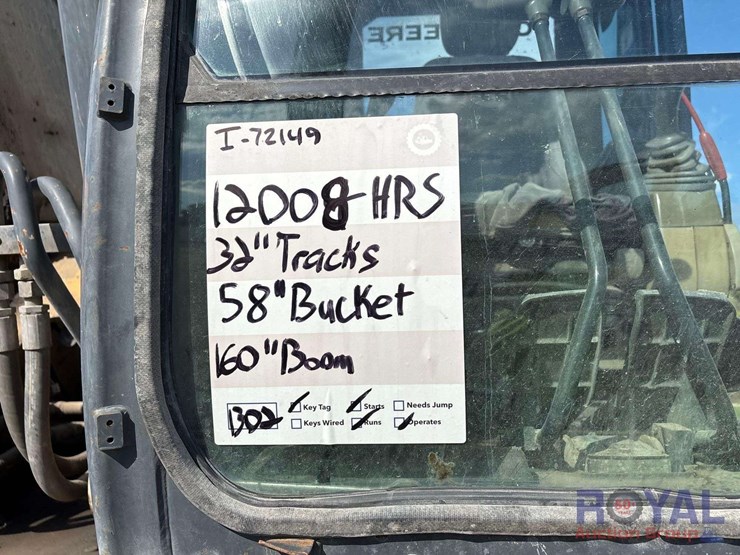 DEERE
I-72149
12008 HRS
32" Tracks
58" Bucket
160" Boom
1302
Key Tag Starts Needs Jump
Keys Wired Runs Operates
ROYAL